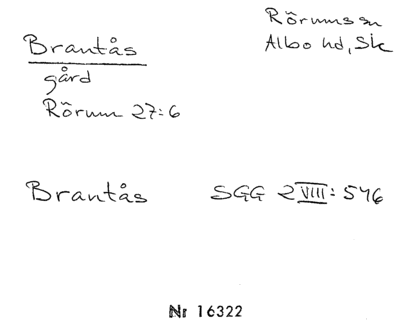 Brantås
gård
Rörum 27:6
Rörums sn
Albo hd, Sk
Brantås SGG 2 VIII: 546
Nr 16322